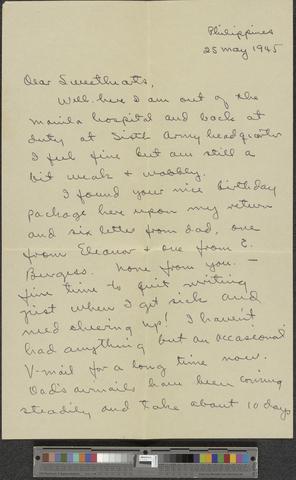 Philippines
25 May 1945
Dear Sweethearts,
Well here I am out of the
Manila hospital and back at
duty at Sixth Army headquarter
I feel fine but am still a
bit weak + wobbly.
I found your nice birthday
package here upon my return
and six letter from Dad, one
from Eleanor + one from E.
Burgess. None from you. —
fine time to quit writing
just when I get sick and
need cheering up! I haven't
had anything but an occasional
V-mail for a long time now.
Dad's airmails have been coming
steadily and take about 10 days